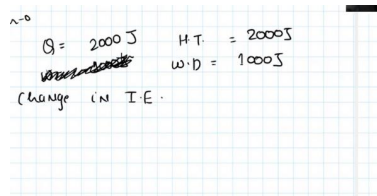 Q = 2000 J H.T. = 2000J
W.D = 1000J
Change in I.E.